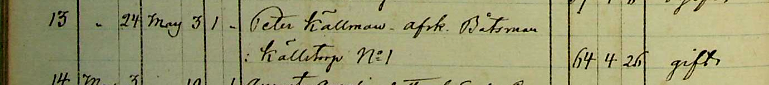 13 " 24 May 3 1 - Peter Källman - afsk. Båtsman
: Källstorp No 1 64 4 26 gift
14